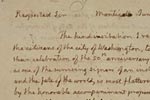 Respected Sir Monticello June
The kind invitation I re
the citizens of the city of Washington, to
their celebration of the 50th anniversary
as one of the surviving signers of an in
and the fate of the world, is most flatter
by the honorable accompaniment propos